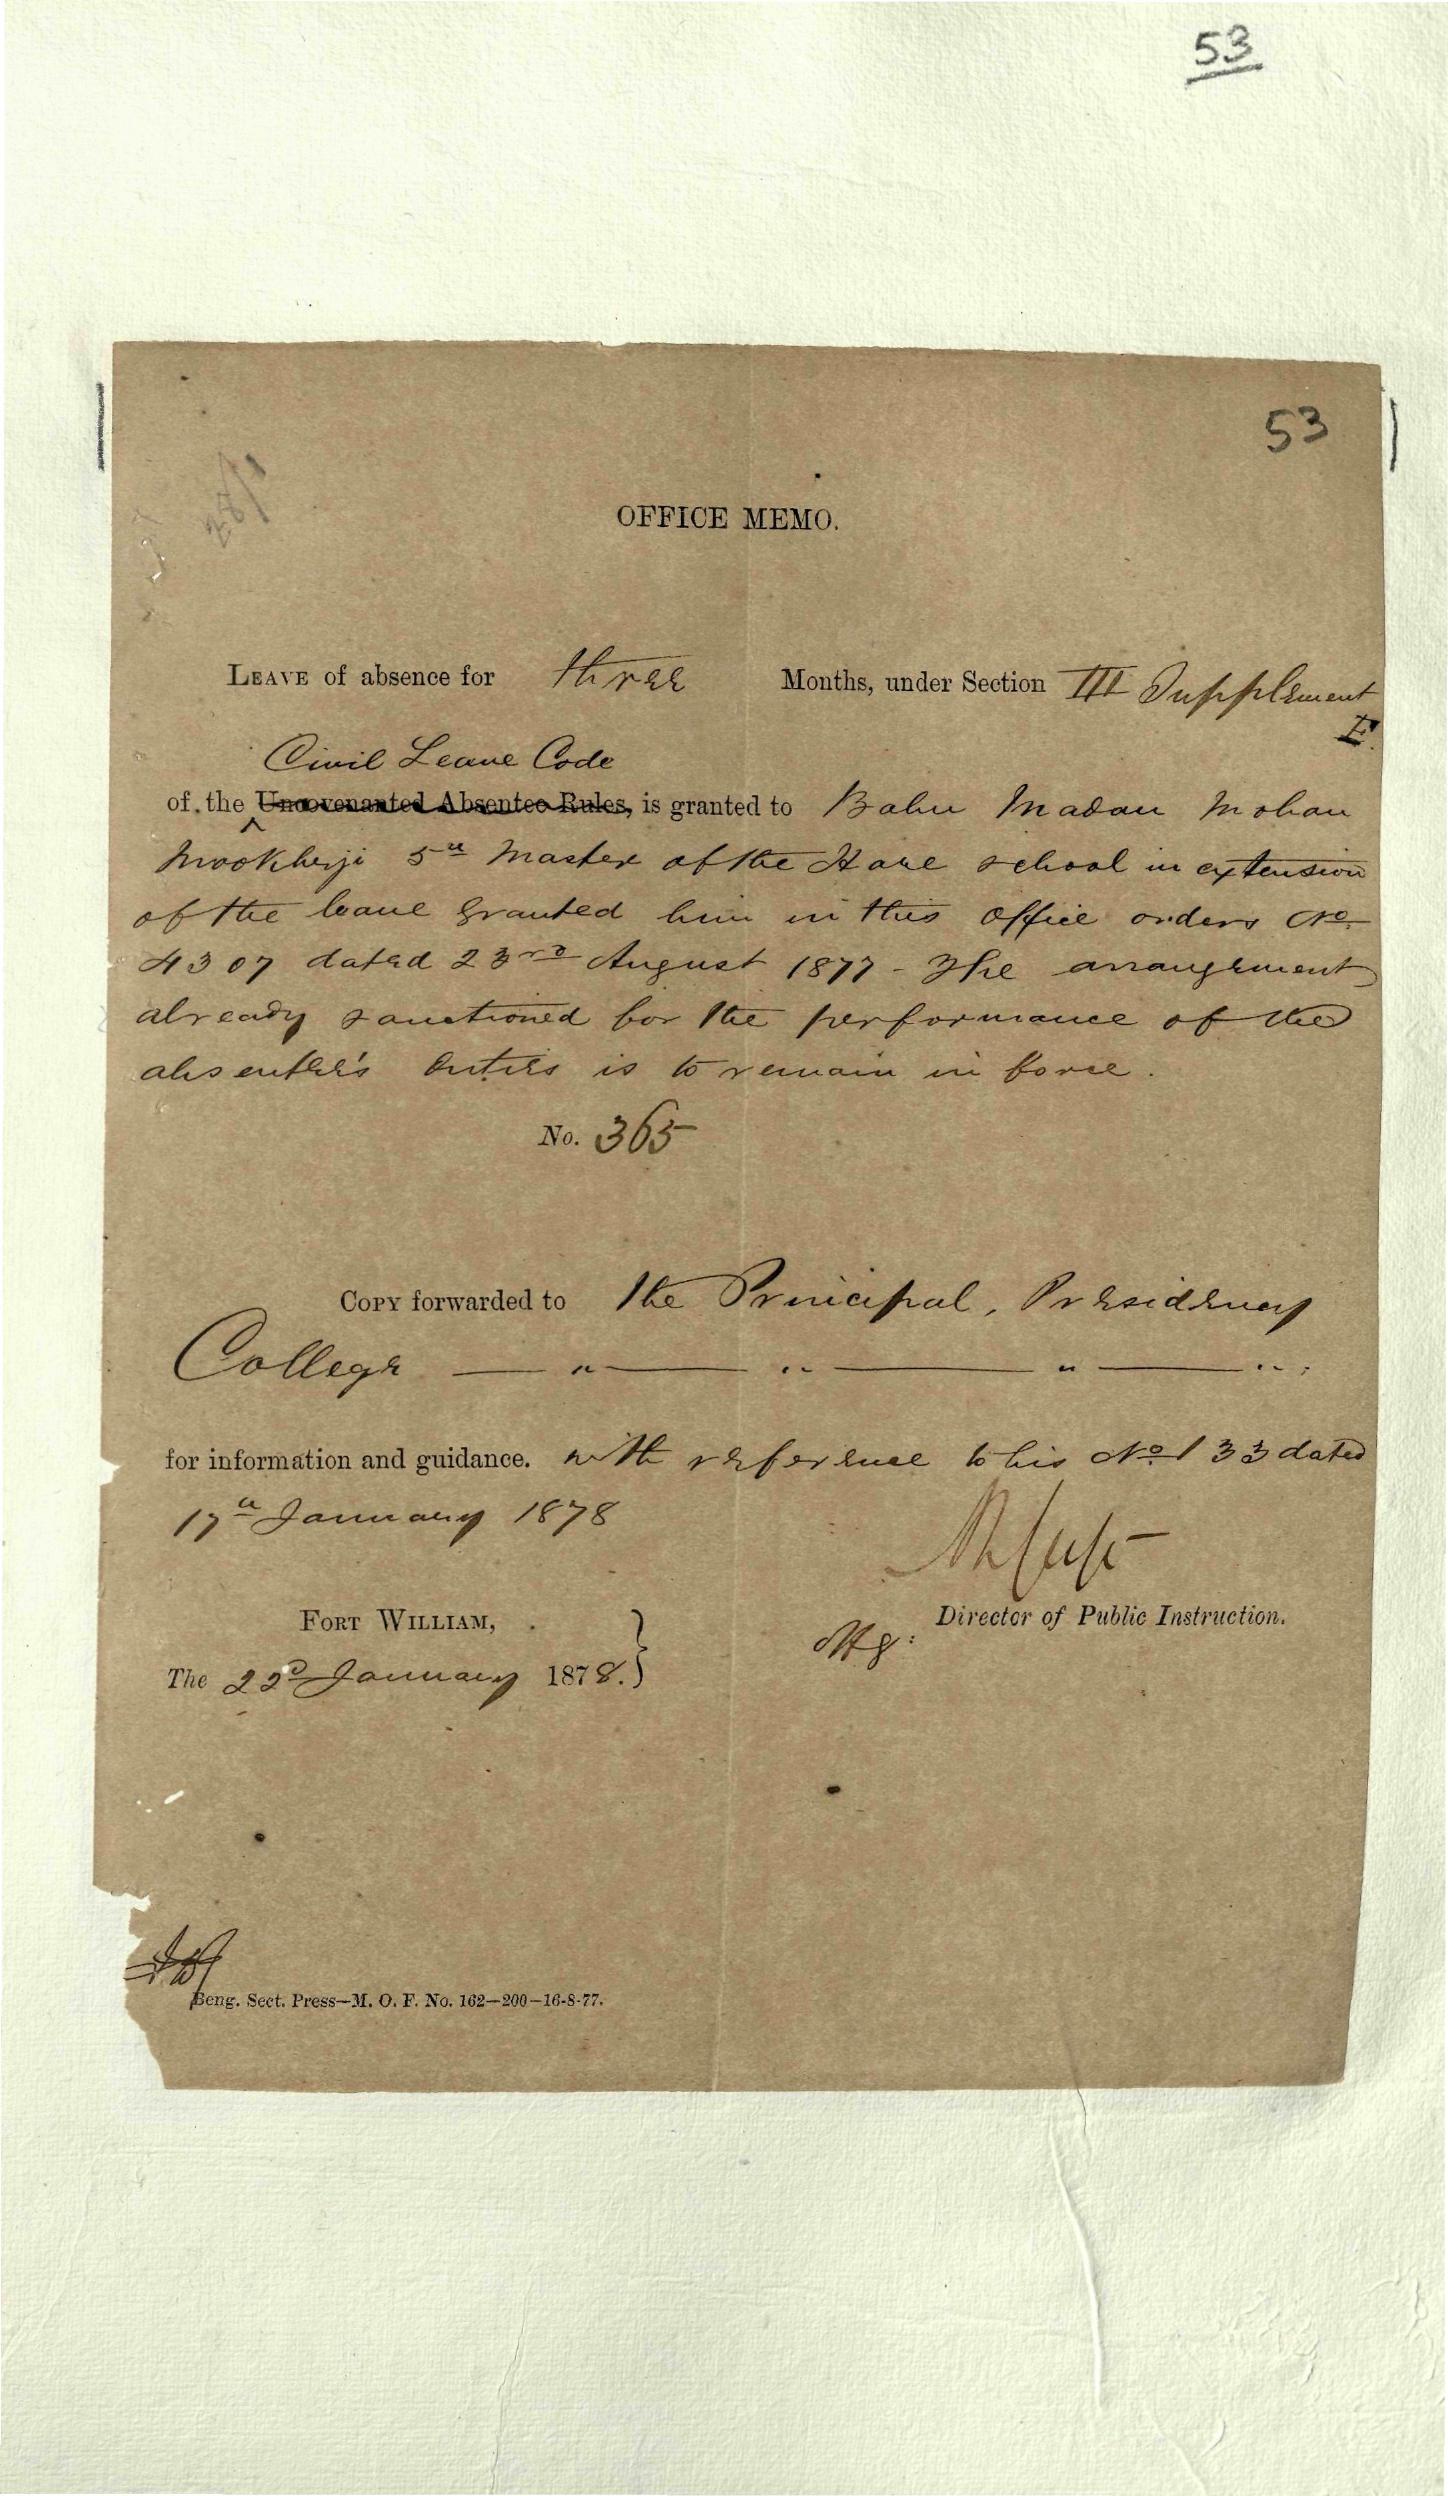 53
53
OFFICE MEMO.
LEAVE of absence for three Months, under Section III Supplement
F.
Civil Leave Code
of the Uncovenanted Absentee Rules, is granted to Babu Madan Mohan
Mookherji 5th Master of the Hare School in extension
of the leave granted him in this office orders No.
4307 dated 23rd August 1877 - The arrangement
already sanctioned for the performance of the
absentee's duties is to remain in force.
No. 365
COPY forwarded to the Principal, Presidency
College — " — " — " — "
for information and guidance. with reference to his No. 133 dated
17th January 1878
Director of Public Instruction.
Offg:
FORT WILLIAM,
The 22d January 1878.}
Beng. Sect. Press—M. O. F. No. 162—200—16-8-77.